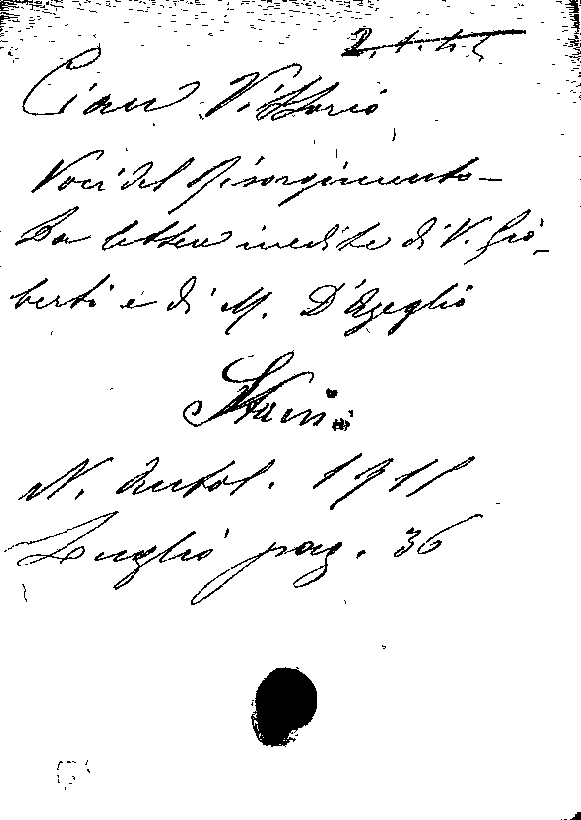 Cian Vittorio
Voci del Risorgimento -
Da lettere inedite di V. Gio-
berti e di M. D'Azeglio
N. Antol. 1911
Luglio pag. 36